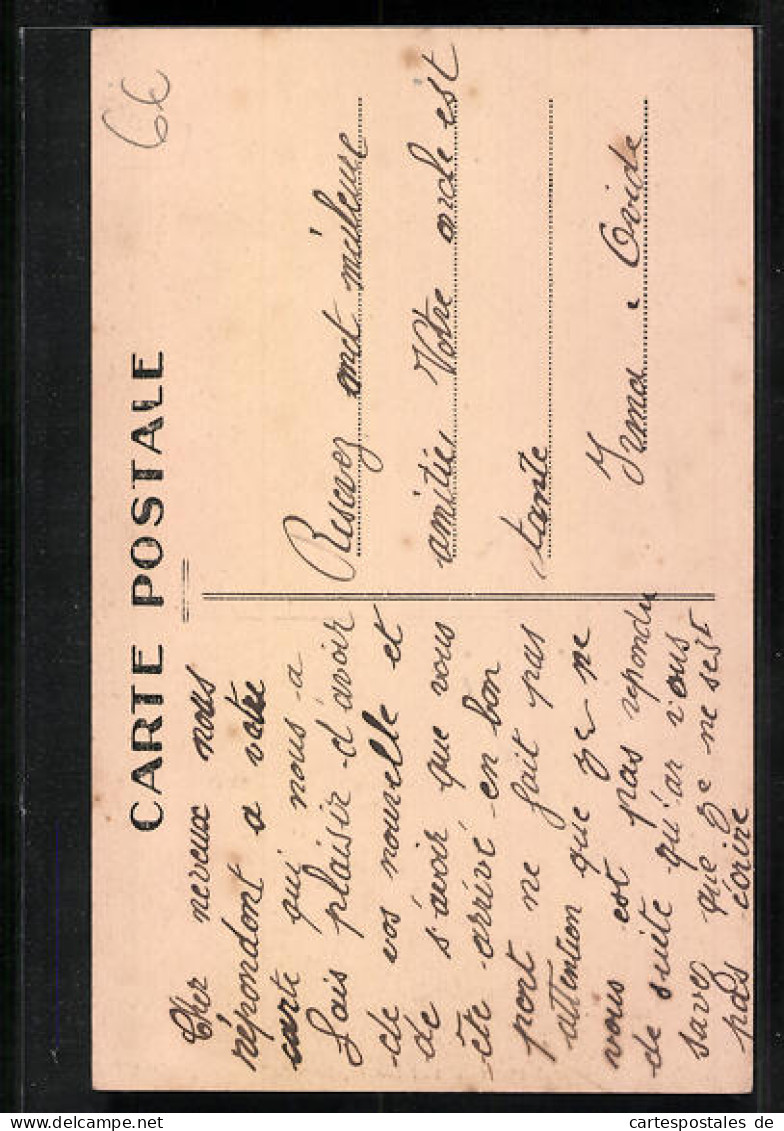 6€
CARTE POSTALE
Cher neveux nous
répondont a votre
carte qui nous a
fais plaisir d'avoir
de vos nouvelle et
de s'avoir que vous
ête arrivé en bon
port ne fait pas
attention que ge ne
vous est pas repondu
de suite qu'ar vous
savez que ge ne sest
pas écrire
Resevez
amitiés Votre oncle est
tante
Irma . Ovide
cartespostales.de